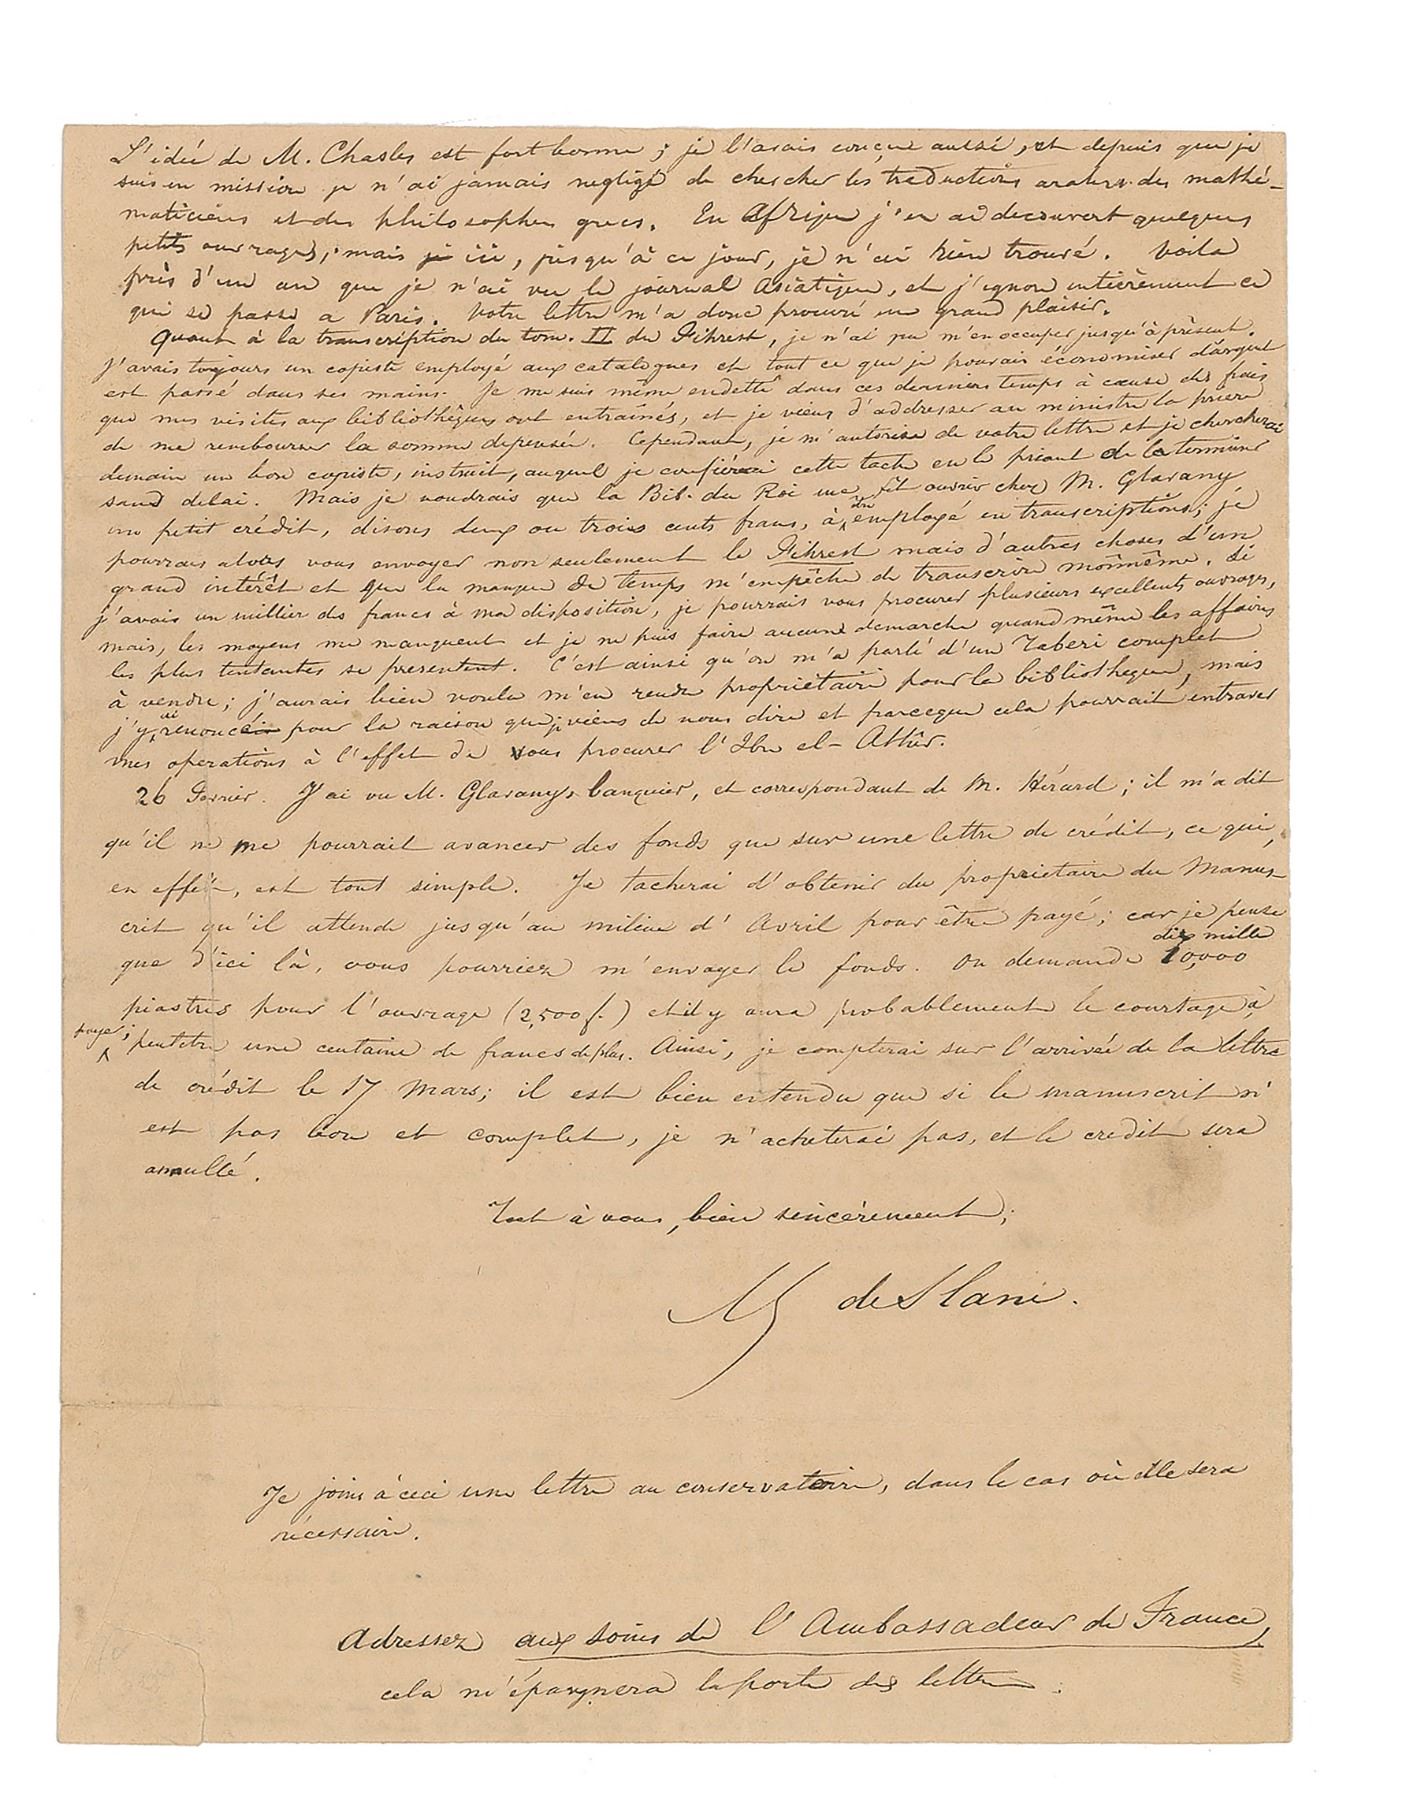 L'idée de M. Chasles est fort bonne ; je l'avais conçue aussi, et depuis que je
suis en mission je n'ai jamais negligé de chercher les traductions arabes des mathé-
maticiens et des philosophes grecs. En Afrique j'en ai decouvert quelques
petits ouvrages ; mais ici, jusqu'à ce jour, je n'ai rien trouvé. Voila
près d'un an que je n'ai vu le journal Asiatique, et j'ignore entièrement ce
qui se passe a Paris. Votre lettre m'a donc procuré un grand plaisir.
Quant à la transcription du tom. II du Fihrest, je n'ai pu m'en occuper jusqu'à présent.
J'avais toujours un copiste employé aux catalogues et tout ce que je pouvais économiser d'argent
est passé dans ses mains. Je me suis même endetté dans ces derniers temps à cause des frais
que mes visites aux bibliothèques ont entraînés, et je viens d'addresser au ministre la prière
de me rembourser la somme depensée. Cependant, je m'autorise de votre lettre et je chercherai
demain un bon copiste, instruit, auquel je confierai cette tache en le priant de la terminer
sans delai. Mais je voudrais que la Bib. du Roi me fit ouvrir chez M. Glavany
un petit crédit, disons deux ou trois cents francs, à être employé en transcriptions ; je
pourrais alors vous envoyer non seulement le Fihrest mais d'autres choses d'un
grand intérêt et que le manque de temps m'empêche de transcrire moimême. Si
j'avais un millier de francs à ma disposition, je pourrais vous procurer plusieurs excellents ouvrages,
mais, les moyens me manquent et je ne puis faire aucune demarche quand même les affaires
les plus tentantes se presentent. C'est ainsi qu'on m'a parlé d'un Taberi complet
à vendre ; j'aurais bien voulu m'en rendre propriétaire pour la bibliotheque, mais
j'y ai renoncé pour la raison que je viens de vous dire et parceque cela pourrait entraver
mes operations à l'effet de vous procurer l'Ibn el-Athîr.
26 Janvier. J'ai vu M. Glavany, banquier, et correspondant de M. Hérard ; il m'a dit
qu'il ne me pourrait avancer des fonds que sur une lettre de crédit, ce qui,
en effet, est tout simple. Je tacherai d'obtenir du propriétaire du Manus-
crit qu'il attende jusqu'au milieu d'Avril pour être payé ; car je pense
que d'ici là, vous pourriez m'envoyer le fonds. On demande 10,000
dix mille
piastres pour l'ouvrage (2,500 f.) et il y aura probablement le courtage à
payer ; peutetre une centaine de francs de plus. Ainsi, je compterai sur l'arrivée de la lettre
de crédit le 17 Mars ; il est bien entendu que si le manuscrit n'
est pas bon et complet, je n'acheterai pas, et le credit sera
annullé.
Tout à vous, bien sincèrement ;
M de Slane.
Je joins à ceci une lettre au conservatoire, dans le cas où elle sera
nécessaire.
Adressez aux soins de l'Ambassadeur de France,
cela m'épargnera le porte des lettres.